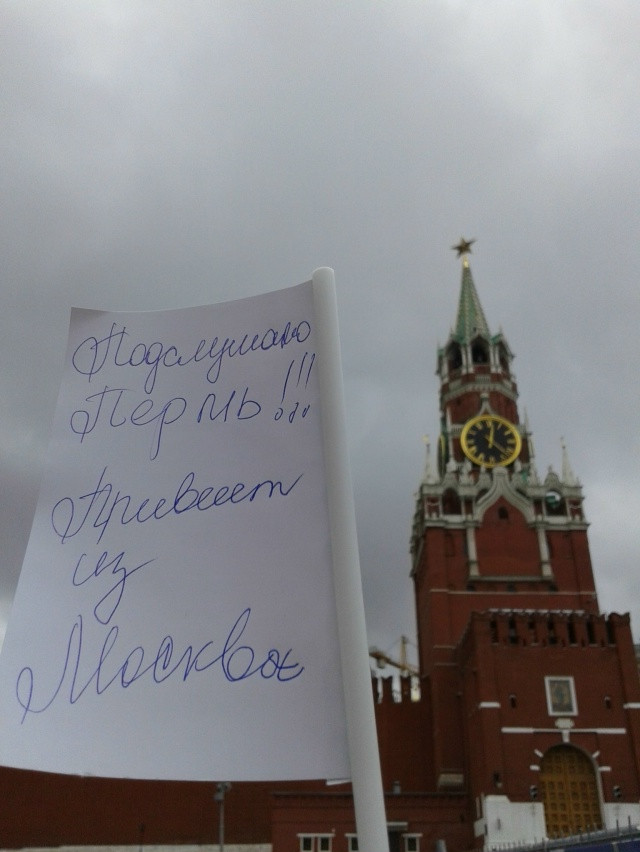 Подслушано
Пермь!!!
Привет
из
Москвы